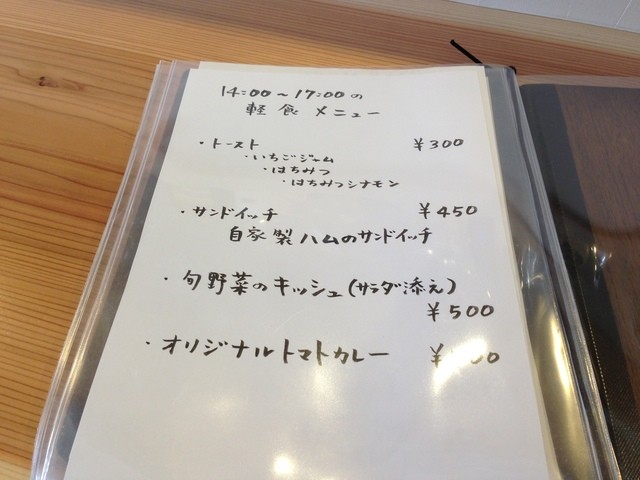 14:00〜17:00の
軽食メニュー
・トースト ¥300
・いちごジャム
・はちみつ
・はちみつシナモン
・サンドイッチ ¥450
自家製ハムのサンドイッチ
・旬野菜のキッシュ(サラダ添え)
¥500
・オリジナルトマトカレー